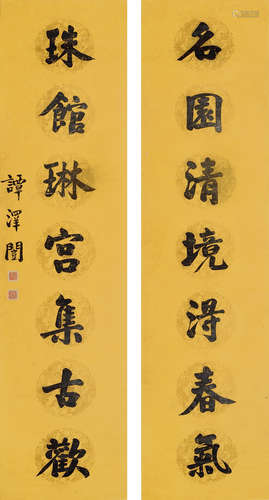 名園清境得春氣
珠館琳宮集古歡
譚澤闓